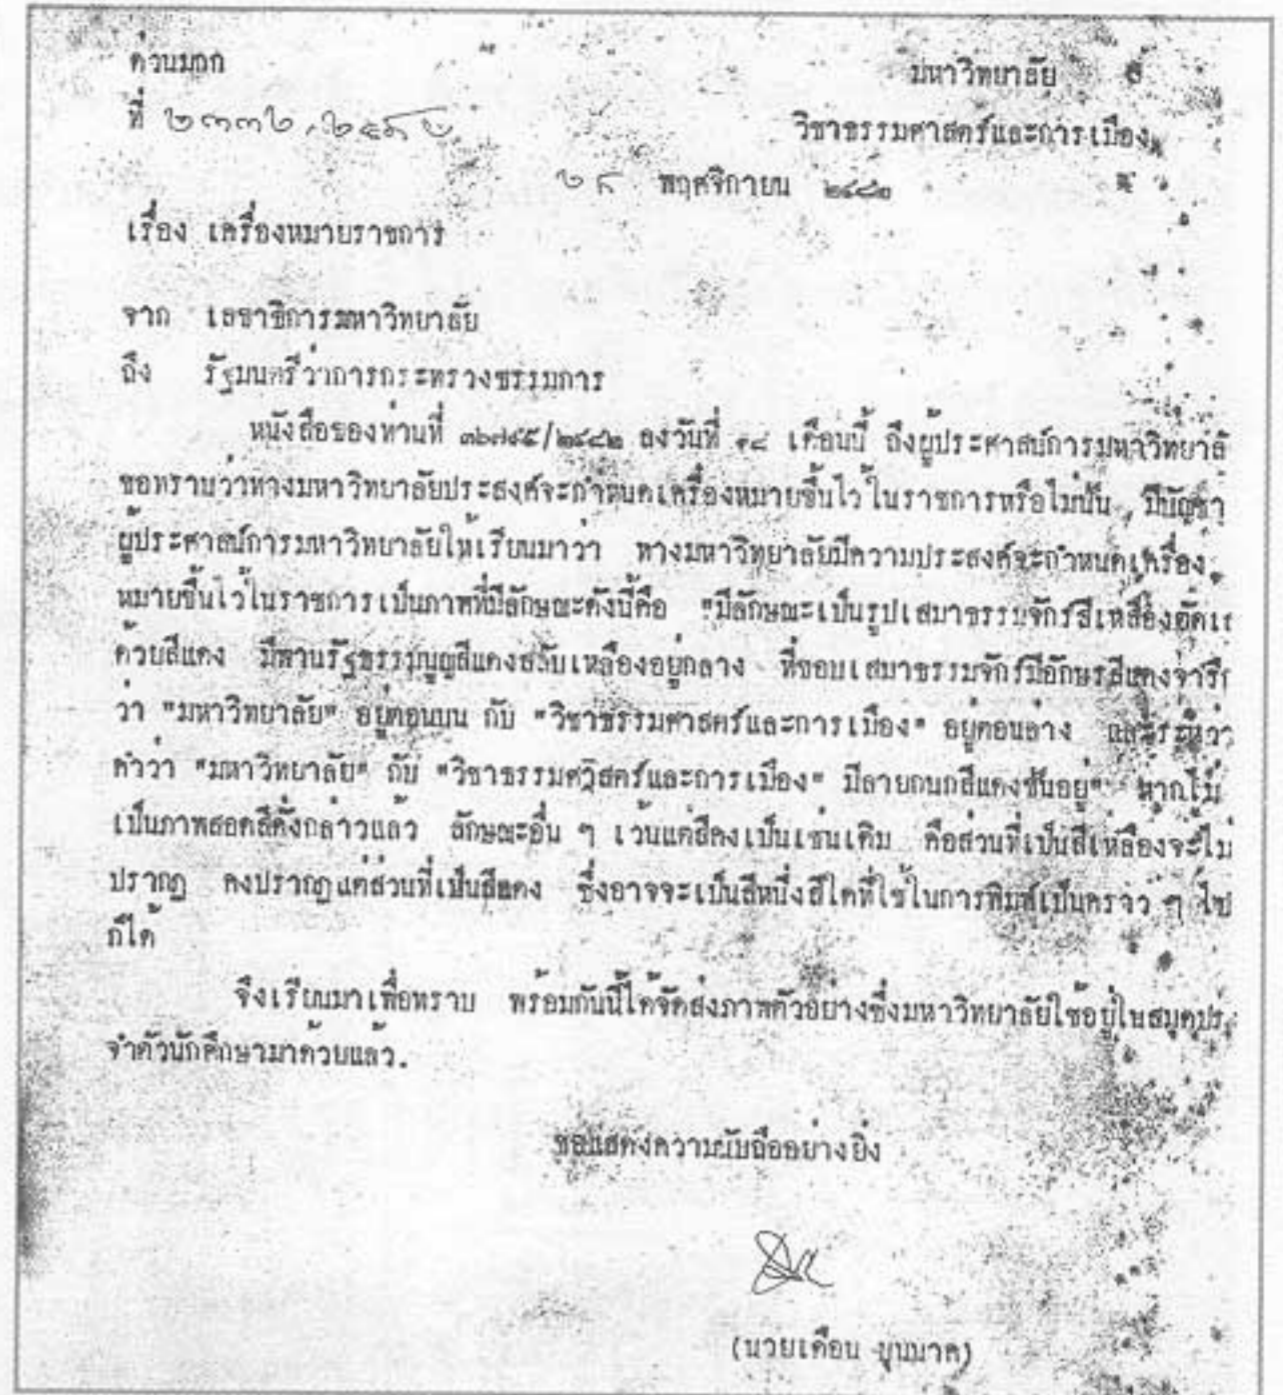 ด่วนมาก
มหาวิทยาลัย
ที่
วิชาธรรมศาสตร์และการเมือง
พฤศจิกายน ๒๔๘๒
เรื่อง เครื่องหมายราชการ
จาก เลขาธิการมหาวิทยาลัย
ถึง รัฐมนตรีว่าการกระทรวงธรรมการ
หนังสือของท่านที่ ลงวันที่ ๑๘ เดือนนี้ ถึงผู้ประศาสน์การมหาวิทยาลั
ขอทราบว่าทางมหาวิทยาลัยประสงค์จะกำหนดเครื่องหมายขึ้นไว้ในราชการหรือไม่นั้น, มีบัญชา
ผู้ประศาสน์การมหาวิทยาลัยให้เรียนมาว่า ทางมหาวิทยาลัยมีความประสงค์จะกำหนดเครื่อง
หมายขึ้นไว้ในราชการเป็นภาพที่มีลักษณะดังนี้คือ "มีลักษณะเป็นรูปเสมาธรรมจักร์สีเหลืองตัดเ
ด้วยสีแดง มีพานรัฐธรรมนูญสีแดงสลับเหลืองอยู่กลาง ที่ขอบเสมาธรรมจักร์มีอักษรสีแดงจารึ
ว่า "มหาวิทยาลัย" อยู่ตอนบน กับ "วิชาธรรมศาสตร์และการเมือง" อยู่ตอนล่าง และระหว่า
คำว่า "มหาวิทยาลัย" กับ "วิชาธรรมศาสตร์และการเมือง" มีลายกนกสีแดงขั้นอยู่" หากไม่
เป็นภาพสอดสีดั่งกล่าวแล้ว ลักษณะอื่น ๆ เว้นแต่สีคงเป็นเช่นเดิม คือส่วนที่เป็นสีเหลืองจะไม่
ปรากฏ คงปรากฏแต่ส่วนที่เป็นสีแดง ซึ่งอาจจะเป็นสีหนึ่งสีใดที่ใช้ในการพิมพ์เป็นคราว ๆ ไป
ก็ได้
จึงเรียนมาเพื่อทราบ พร้อมกันนี้ได้จัดส่งภาพตัวอย่างซึ่งมหาวิทยาลัยใช้อยู่ในสมุดประ
จำตัวนักศึกษามาด้วยแล้ว.
ขอแสดงความนับถืออย่างยิ่ง
(นวยเดือน บุนนาค)